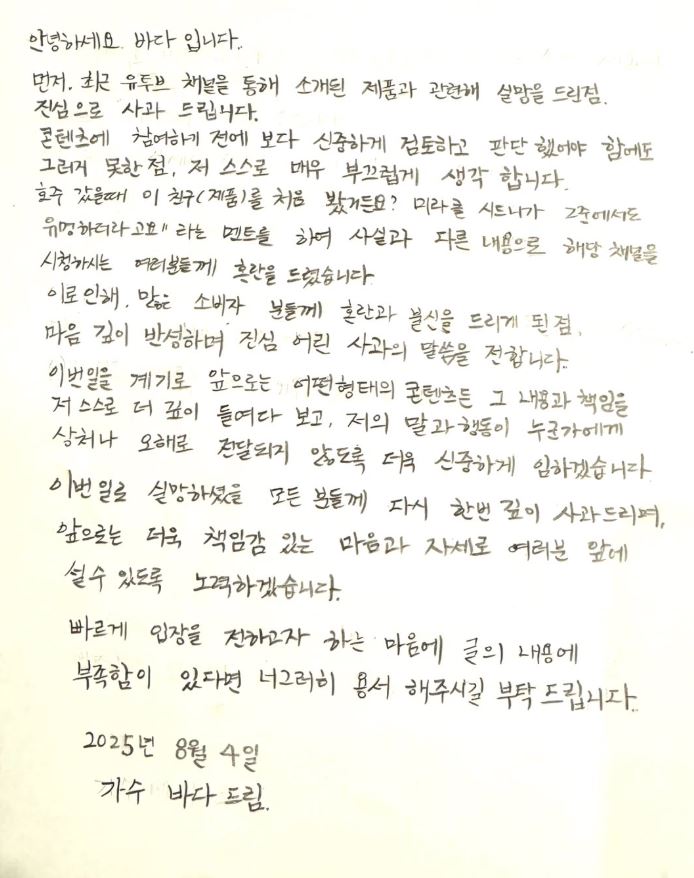 안녕하세요. 바다 입니다..
먼저, 최근 유투브 채널을 통해 소개된 제품과 관련해 실망을 드린점.
진심으로 사과 드립니다.
콘텐츠에 참여하기 전에 보다 신중하게 검토하고 판단 했어야 함에도
그러지 못한 점, 저 스스로 매우 부끄럽게 생각 합니다.
호주 갔을때 이 친구(제품)를 처음 봤거든요? 미라클 시드니가 호주에서도
유명하더라고요" 라는 멘트를 하여 사실과 다른 내용으로 해당 채널을
시청하시는 여러분들께 혼란을 드렸습니다.
이로 인해, 많은 소비자 분들께 혼란과 불신을 드리게 된 점,
마음 깊이 반성하며 진심 어린 사과의 말씀을 전합니다..
이번일을 계기로 앞으로는 어떤형태의 콘텐츠든 그 내용과 책임을
저 스스로 더 깊이 들여다 보고, 저의 말과 행동이 누군가에게
상처나 오해로 전달되지 않도록 더욱 신중하게 임하겠습니다.
이번 일로 실망하셨을 모든 분들께 다시 한번 깊이 사과드리며,
앞으로는 더욱 책임감 있는 마음과 자세로 여러분 앞에
설수 있도록 노력하겠습니다.
빠르게 입장을 전하고자 하는 마음에 글의 내용에
부족함이 있다면 너그러히 용서 해주시길 부탁 드립니다..
2025년 8월 4일
가수 바다 드림.